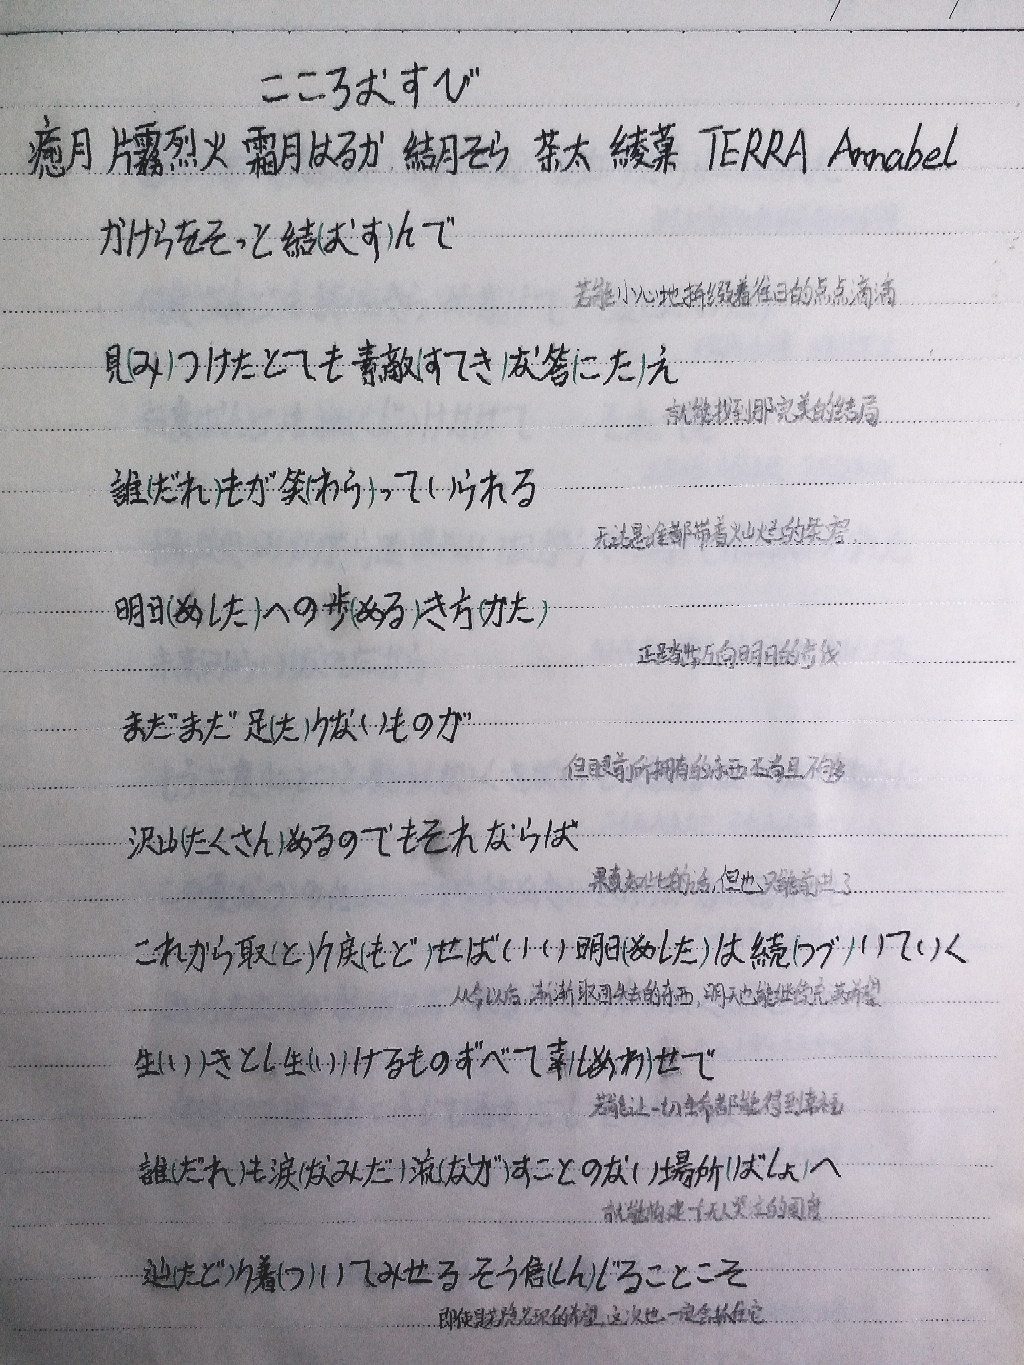 こころむすび
癒月 片霧烈火 霜月はるか 結月そら 茶太 綾菓 TERRA Annabel
かけらをそっと結(むす)んで
若能小心地拼缀着往日的点点滴滴
見(み)つけたとても素敵(すてき)な答(こた)え
就能找到那完美的结局
誰(だれ)もが笑(わら)っていられる
无论是谁都带着灿烂的笑容
明日(あした)への歩(ある)き方(かた)
正是迈向明日的步伐
まだまだ足(た)りないものが
但眼前所拥有的东西尚且不够
沢山(たくさん)あるのでもそれならば
果真如此的话,但也只能前进了
これから取(と)り戻(もど)せばいい明日(あした)は続(つづ)いていく
从今以后,渐渐取回失去的东西,明天也能继续充满希望
生(い)きとし生(い)けるものすべて幸(しあわ)せで
若能让一切生命都能得到幸福
誰(だれ)も涙(なみだ)流(なが)すことのない場所(ばしょ)へ
就能构建一个无人哭泣的国度
辿(たど)り着(つ)いてみせる そう信(しん)じることこそ
即使是若隐若现的希望,这次也一定会抓住它